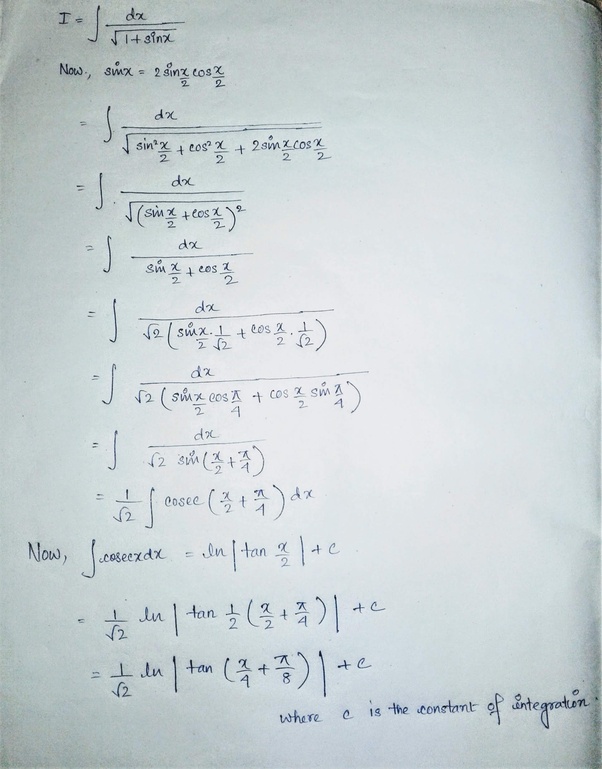 I = ∫ dx / √(1 + sinx)
Now, sinx = 2 sin x/2 cos x/2
= ∫ dx / √(sin² x/2 + cos² x/2 + 2 sin x/2 cos x/2)
= ∫ dx / √((sin x/2 + cos x/2)²)
= ∫ dx / (sin x/2 + cos x/2)
= ∫ dx / (√2 (sin x/2 · 1/√2 + cos x/2 · 1/√2))
= ∫ dx / (√2 (sin x/2 cos π/4 + cos x/2 sin π/4))
= ∫ dx / (√2 sin (x/2 + π/4))
= 1/√2 ∫ cosec (x/2 + π/4) dx
Now, ∫ cosecxdx = ln | tan x/2 | + c
= 1/√2 ln | tan 1/2 (x/2 + π/4) | + c
= 1/√2 ln | tan (x/4 + π/8) | + c
where c is the constant of integration.